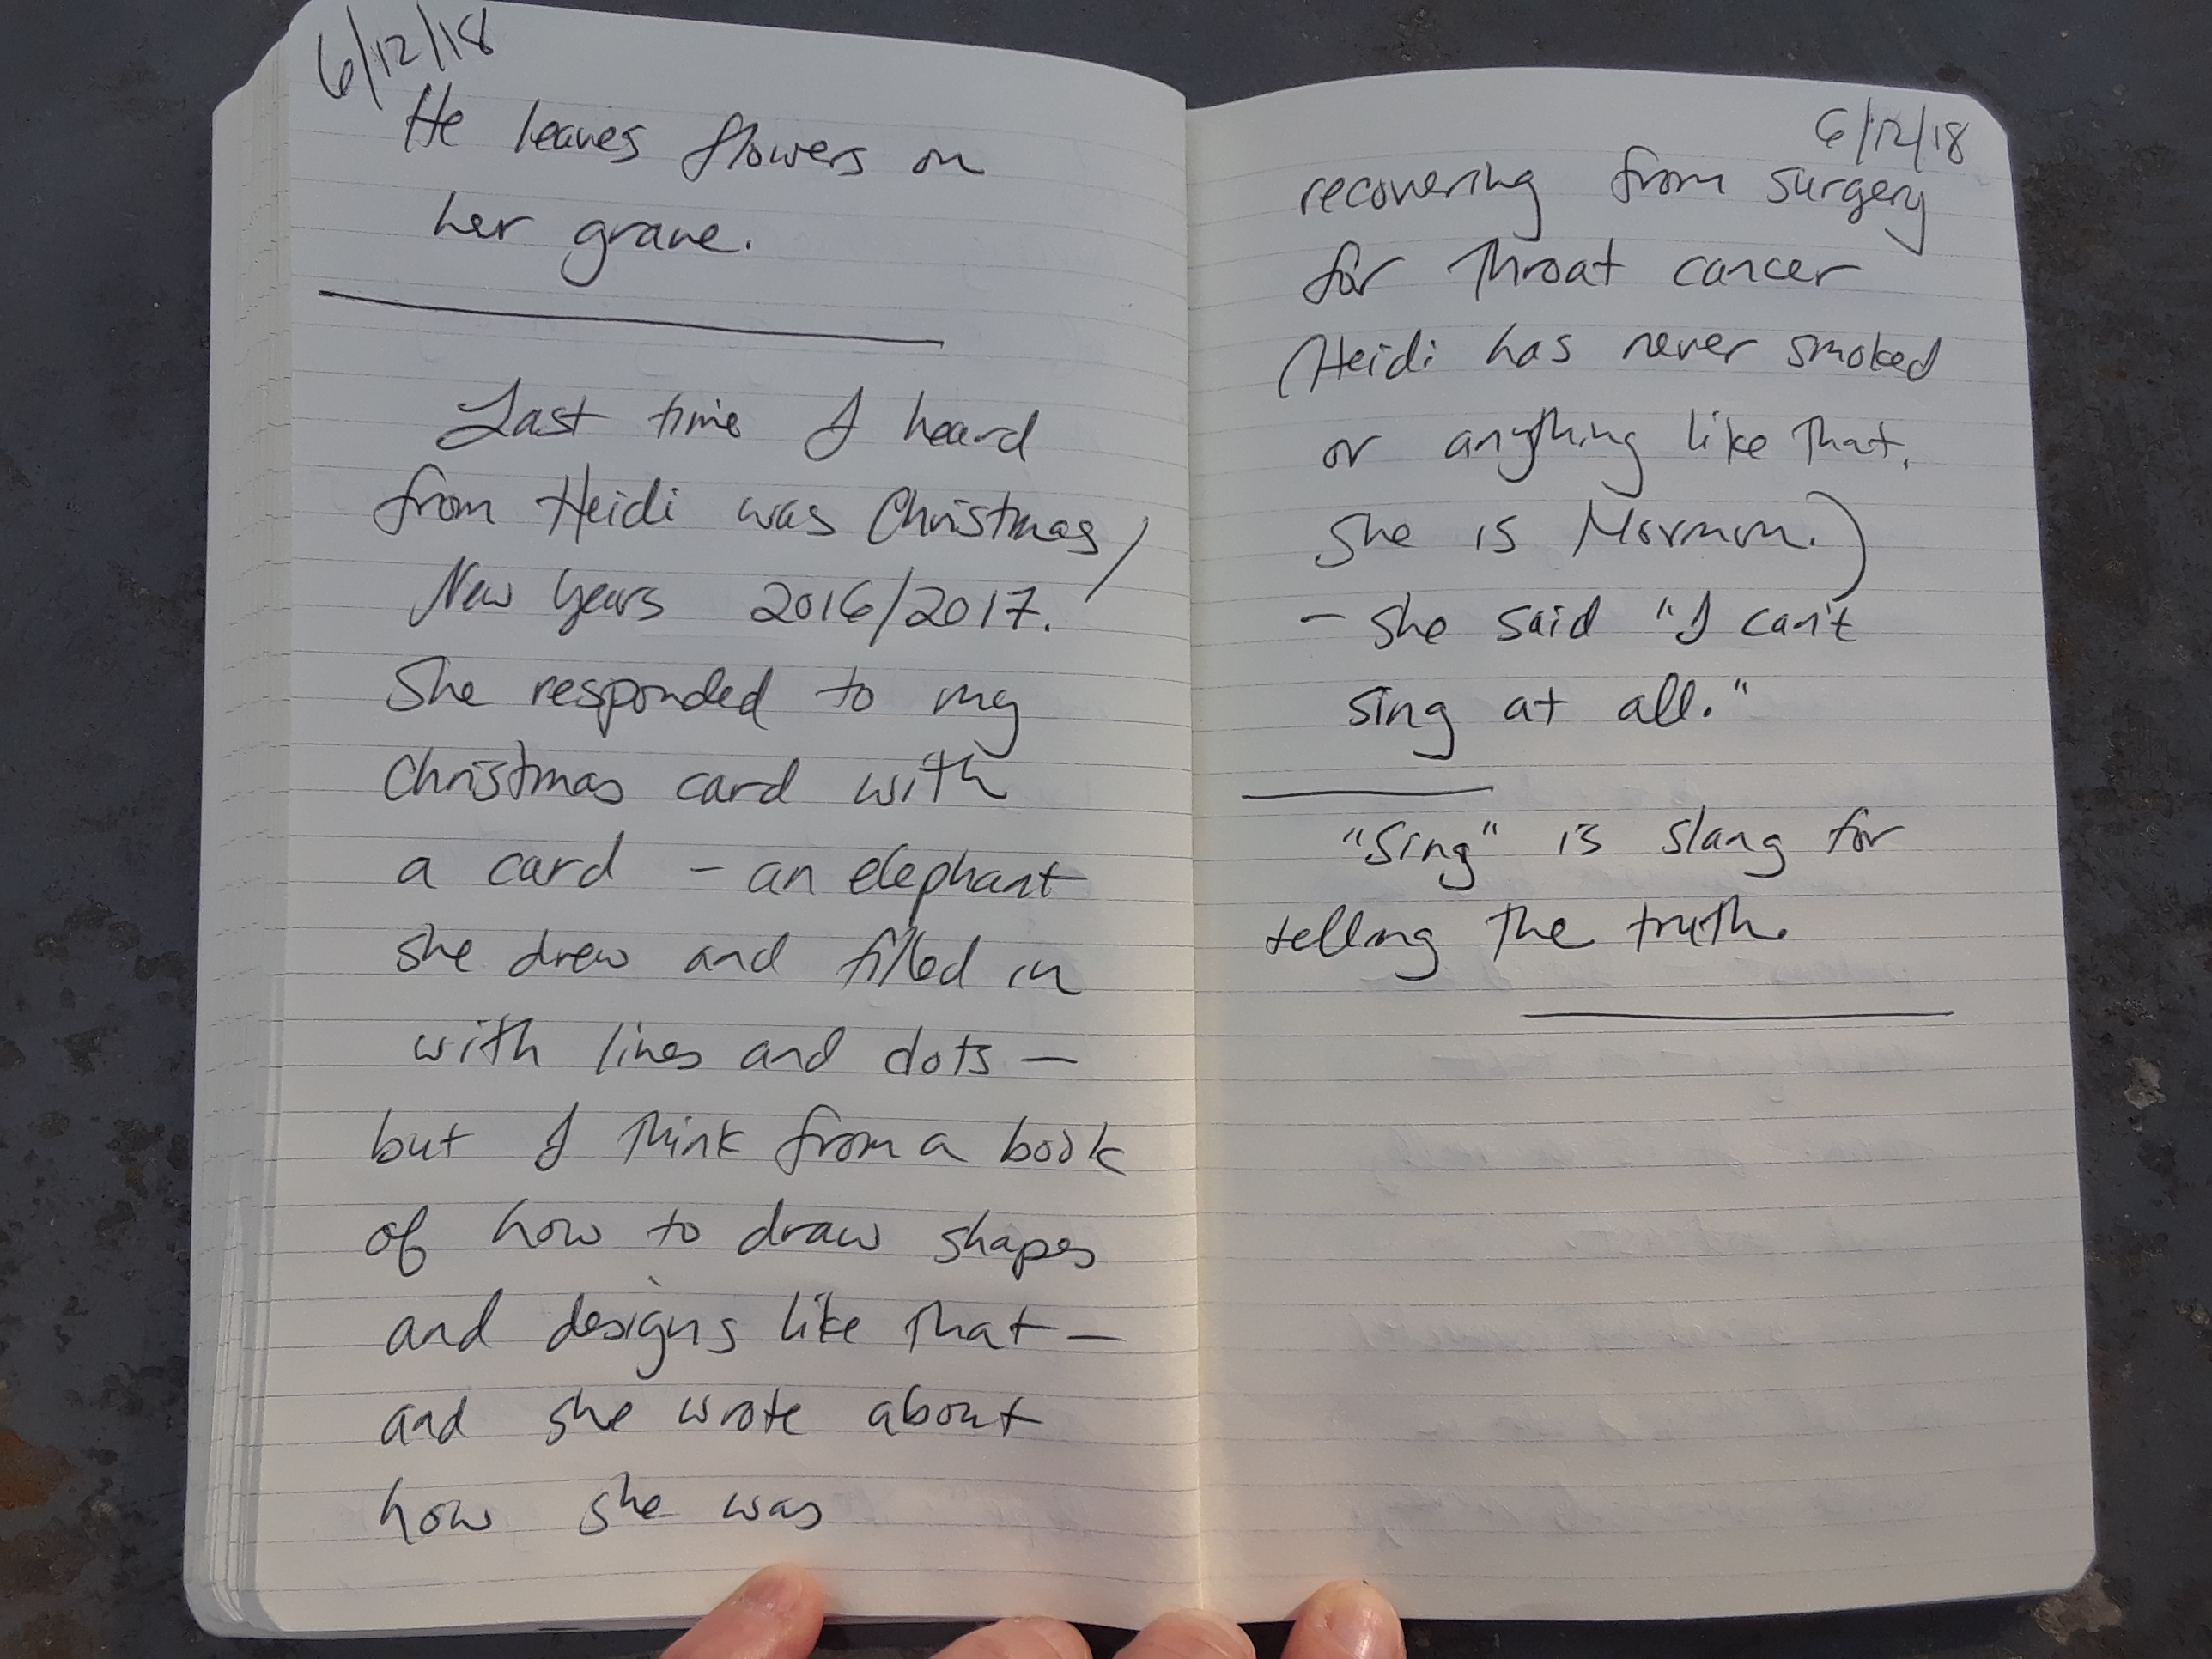 6/12/18
He leaves flowers on
her grave.
Last time I heard
from Heidi was Christmas/
New Years 2016/2017.
She responded to my
Christmas card with
a card – an elephant
she drew and filled in
with lines and dots –
but I think from a book
of how to draw shapes
and designs like that –
and she wrote about
how she was
6/12/18
recovering from surgery
for throat cancer
(Heidi has never smoked
or anything like that.
She is Mormon.)
– she said "I can't
sing at all."
"Sing" is slang for
telling the truth.